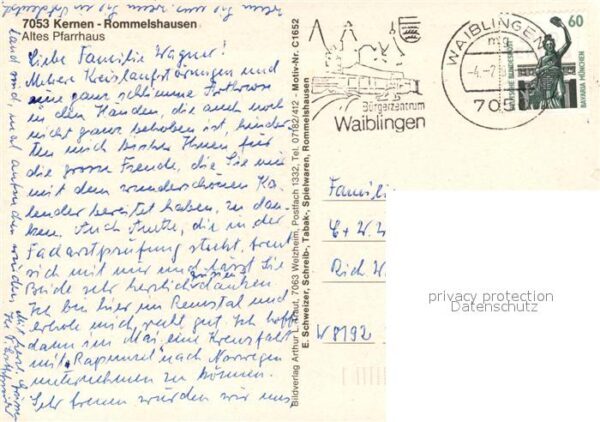 7053 Kernen - Rommelshausen
Altes Pfarrhaus
Liebe Familie Wagner!
Mehrere Kreislaufstörungen und
eine ganz schlimme Arthrose
in den Händen, die auch noch
nicht ganz behoben ist, hinder-
ten mich bisher Ihnen für
die grosse Freude, die Sie mir
mit dem wunderschönen Ka-
lender bereitet haben, zu dan-
ken. Auch die in der
Facharztprüfung steht, freut
sich mit mir und lässt Sie
Beide sehr herzlich grüssen
Ich bin hier im Remstal und
erhole mich recht gut. Ich hoffe
dann im Mai eine Kreuzfahrt
mit nach Norwegen
unternehmen zu können.
Sehr freuen würden wir uns
Bildverlag Arthur F. Krauf, 7063 Welzheim, Postfach 1332, Tel. 07182/412 - Motiv-Nr. C1652
E. Schweizer, Schreib-, Tabak-, Spielwaren, Rommelshausen
Bürgerzentrum
Waiblingen
WAIBLINGEN
705
60
DEUTSCHE BUNDESPOST
BAVARIA MÜNCHEN
Familie
E + W. W
Rich W
W 8192
privacy protection
Datenschutz